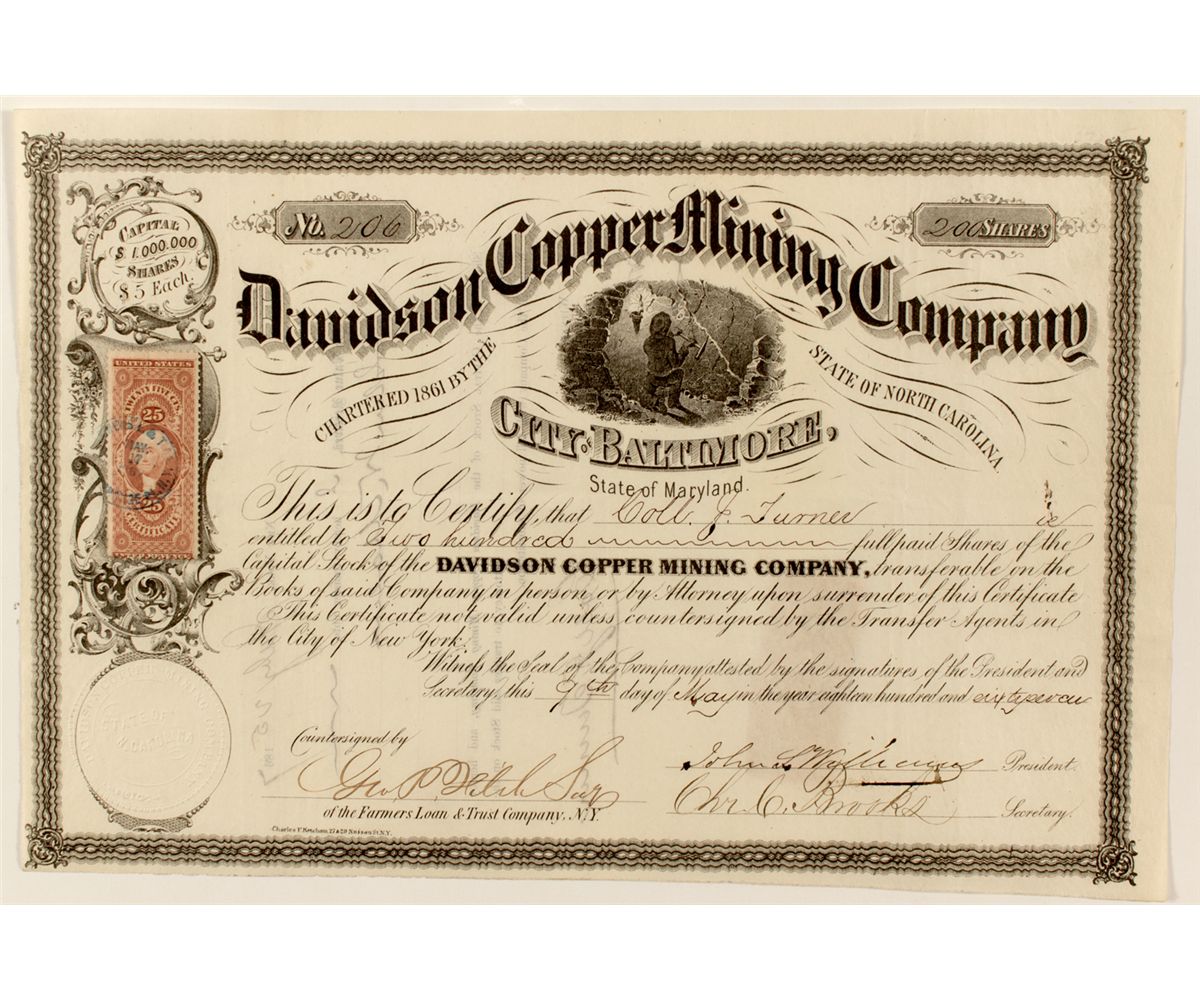 No. 206
200 SHARES
CAPITAL
$ 1.000.000
SHARES
$ 5 Each.
Davidson Copper Mining Company
CHARTERED 1861 BY THE STATE OF NORTH CAROLINA
CITY OF BALTIMORE,
State of Maryland.
UNITED STATES
TWENTY FIVE CTS.
25
25
CERTIFICATE
This is to Certify, that Coll. J. Turner is
entitled to Two hundred full paid Shares of the
Capital Stock of the DAVIDSON COPPER MINING COMPANY, transferable on the
Books of said Company in person or by Attorney upon surrender of this Certificate
This Certificate not valid unless countersigned by the Transfer Agents in
the City of New York.
Witness the Seal of the Company attested by the signatures of the President and
Secretary, this 9th day of May in the year eighteen hundred and sixty seven
Countersigned by
Geo. P. Fitch Secy
of the Farmers Loan & Trust Company, N.Y.
John S. Williams President.
Chr. C. Brooks Secretary.
Charles F. Ketcham, 27 & 29 Nassau St. N.Y.
STATE OF
N. CAROLINA